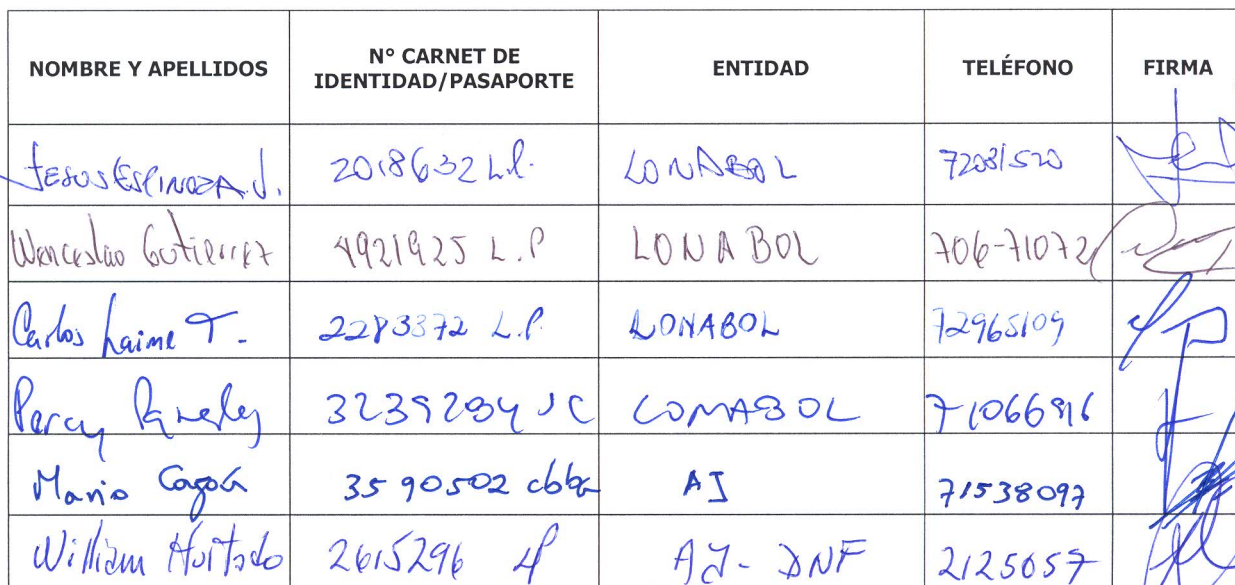 NOMBRE Y APELLIDOS N° CARNET DE IDENTIDAD/PASAPORTE ENTIDAD TELÉFONO FIRMA
JESUS ESPINOZA J. 2018632 L.P. LONABOL 72031520
Wenceslao Gutierrez 4921925 L.P LONABOL 706-71072
Carlos Laime T. 2283372 L.P. LONABOL 72965109
Percy 3239294 LONABOL
Mario 3590502 cbba AJ 71538097
William Hurtado 2615296 LP AJ-DNF 2125057